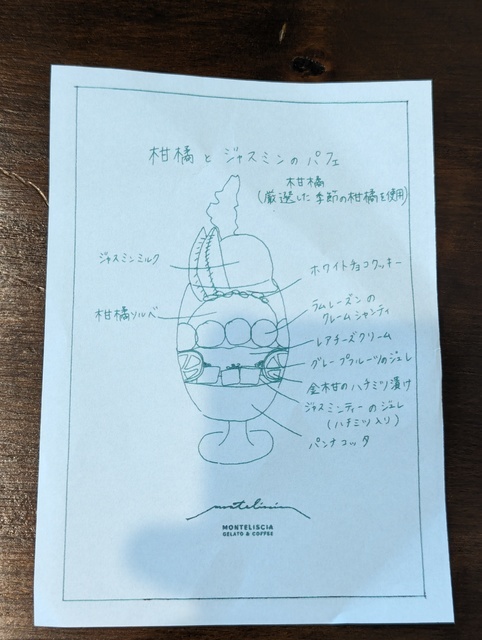 柑橘とジャスミンのパフェ
柑橘
(厳選した季節の柑橘を使用)
ジャスミンミルク
ホワイトチョコクッキー
柑橘ソルベ
ラムレーズンの
クレームシャンティ
レアチーズクリーム
グレープフルーツのジュレ
金柑のハチミツ漬け
ジャスミンティーのジュレ
(ハチミツ入り)
パンナコッタ
monteliscia
MONTELISCIA
GELATO & COFFEE